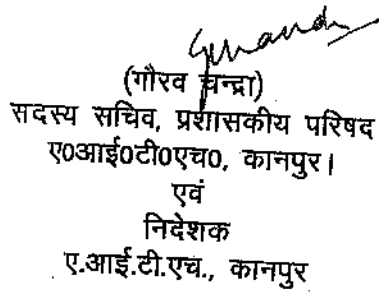 (गौरव चन्द्रा)
सदस्य सचिव, प्रशासकीय परिषद
ए०आई०टी०एच०, कानपुर।
एवं
निदेशक
ए.आई.टी.एच., कानपुर